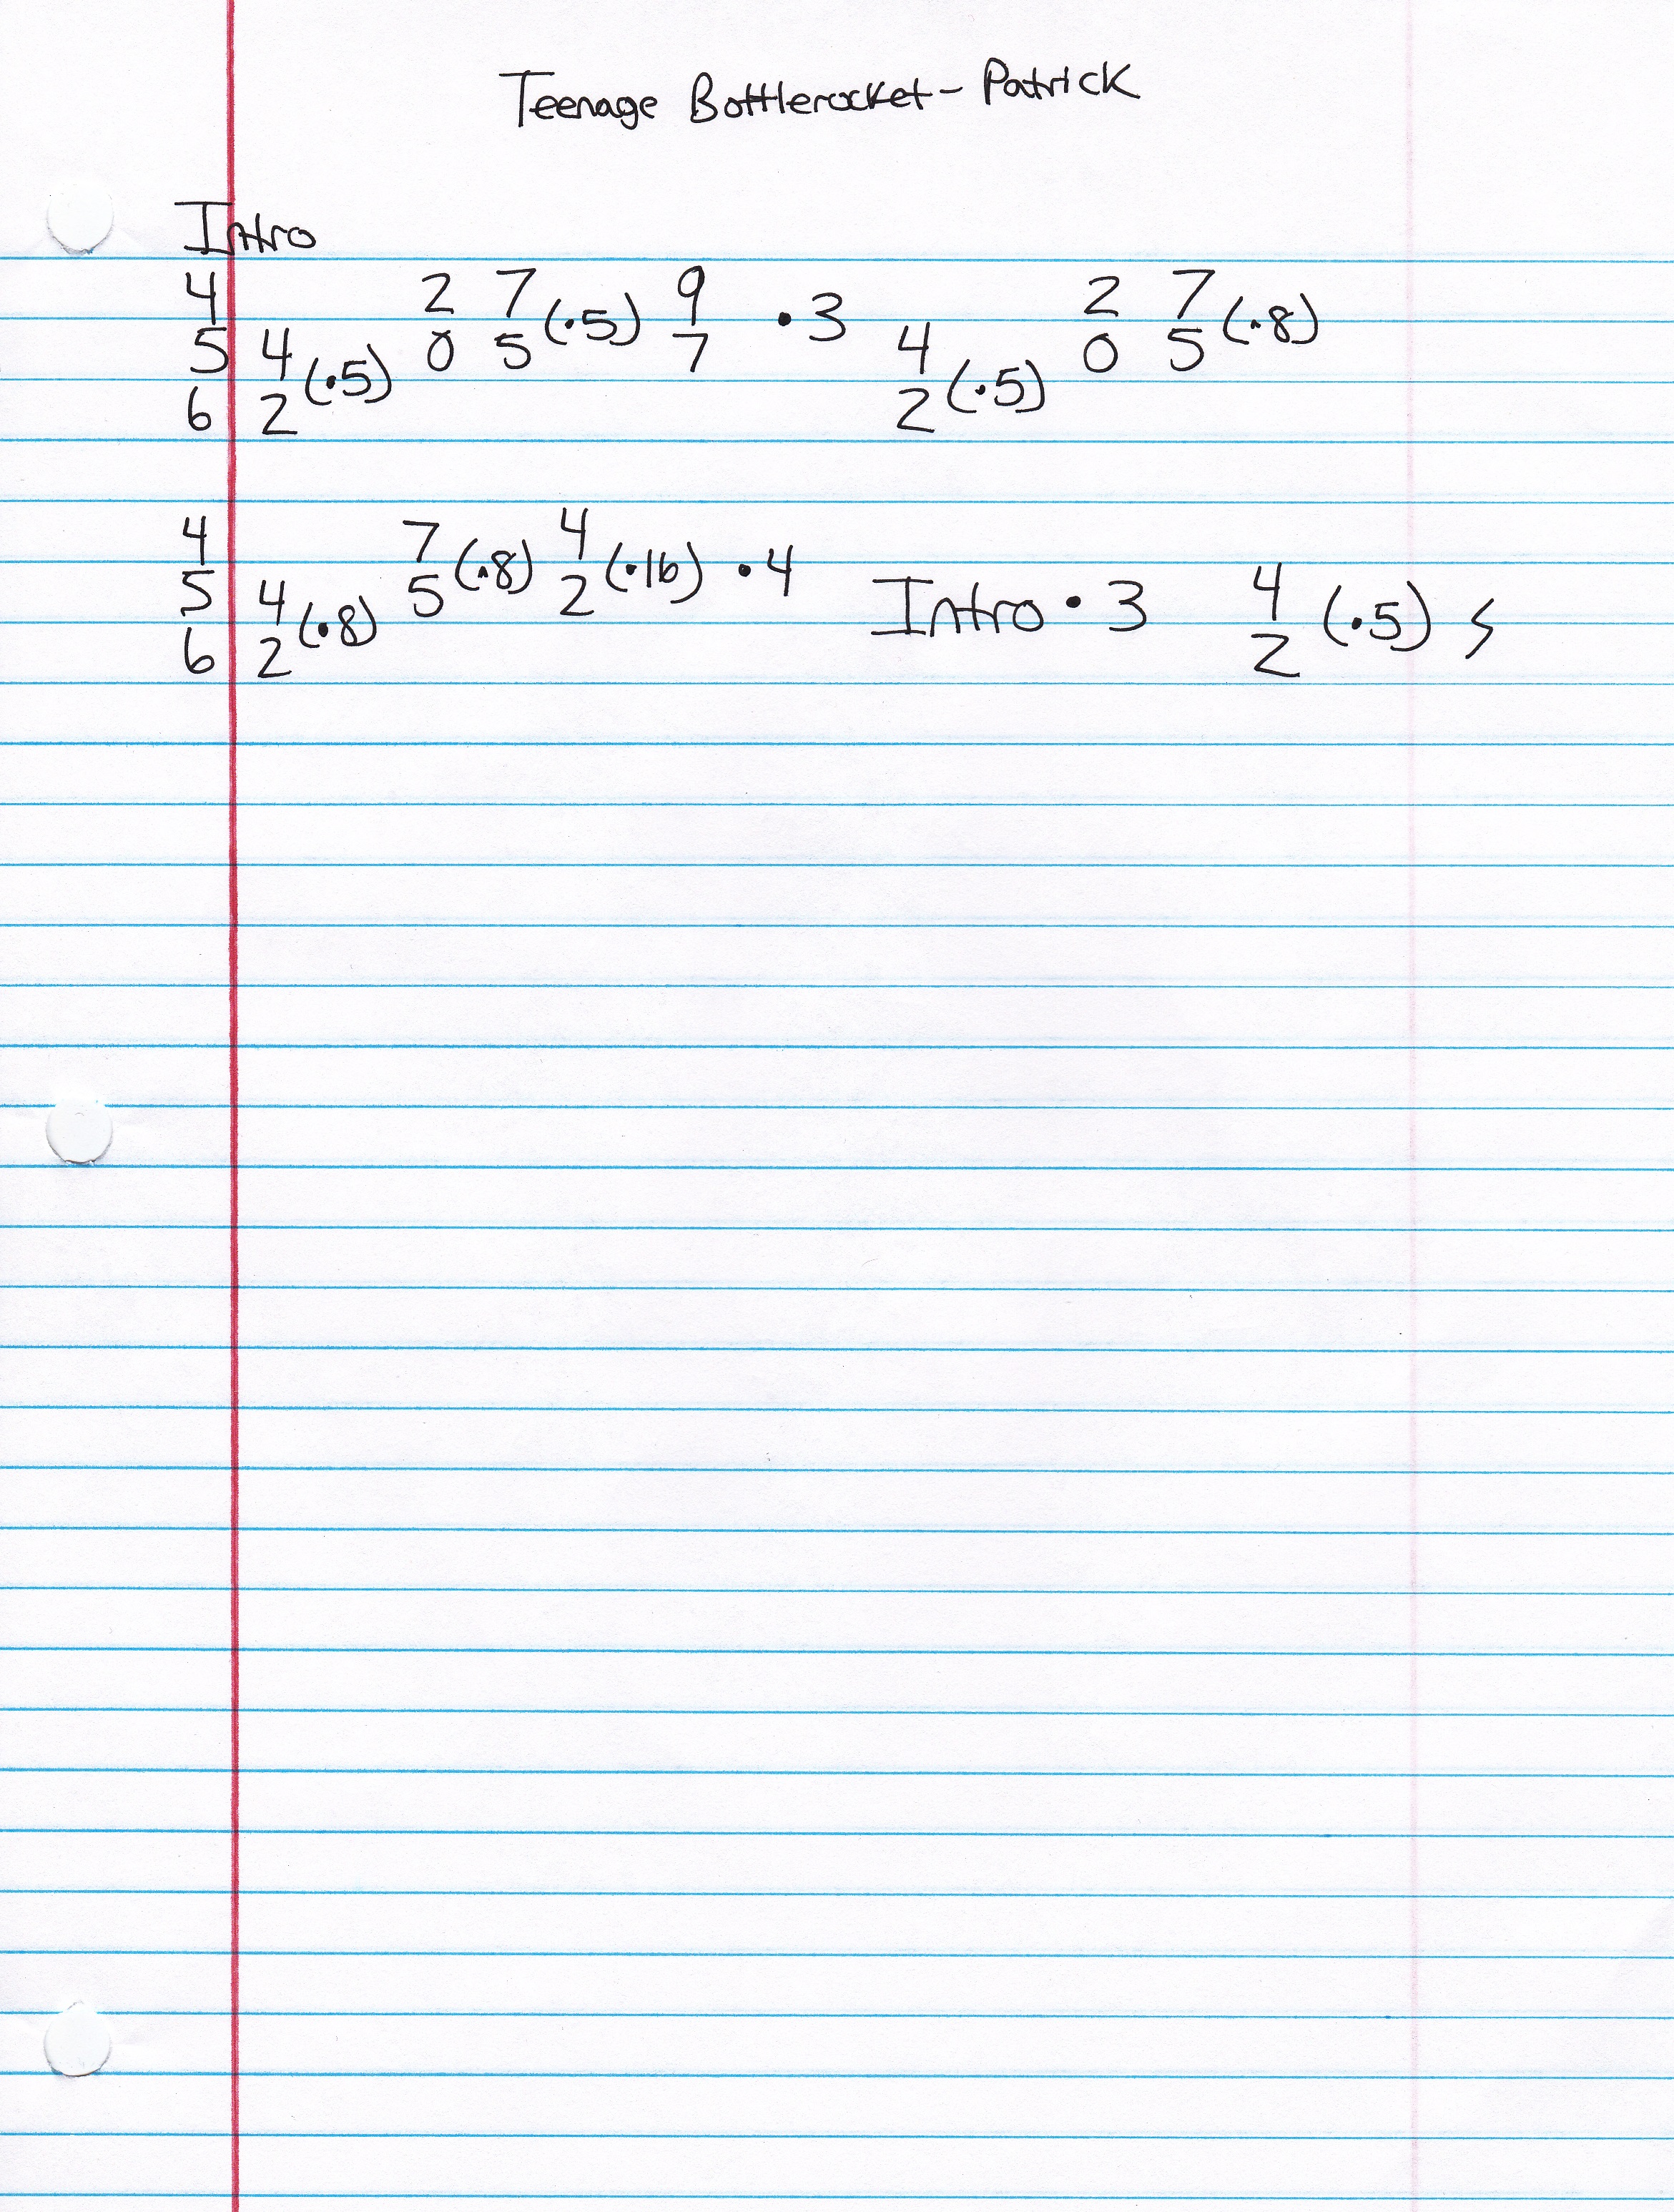 Teenage Bottlerocket - Patrick
Intro
4 2 7 9 2 7
5 4 (·5) 0 5 (·5) 7 ·3 4 0 5 (·8)
6 2 2 (·5)
4 7 4
5 4 5 (·8) 2 (·16) ·4 Intro ·3 4 (·5)
6 2 (·8) 2